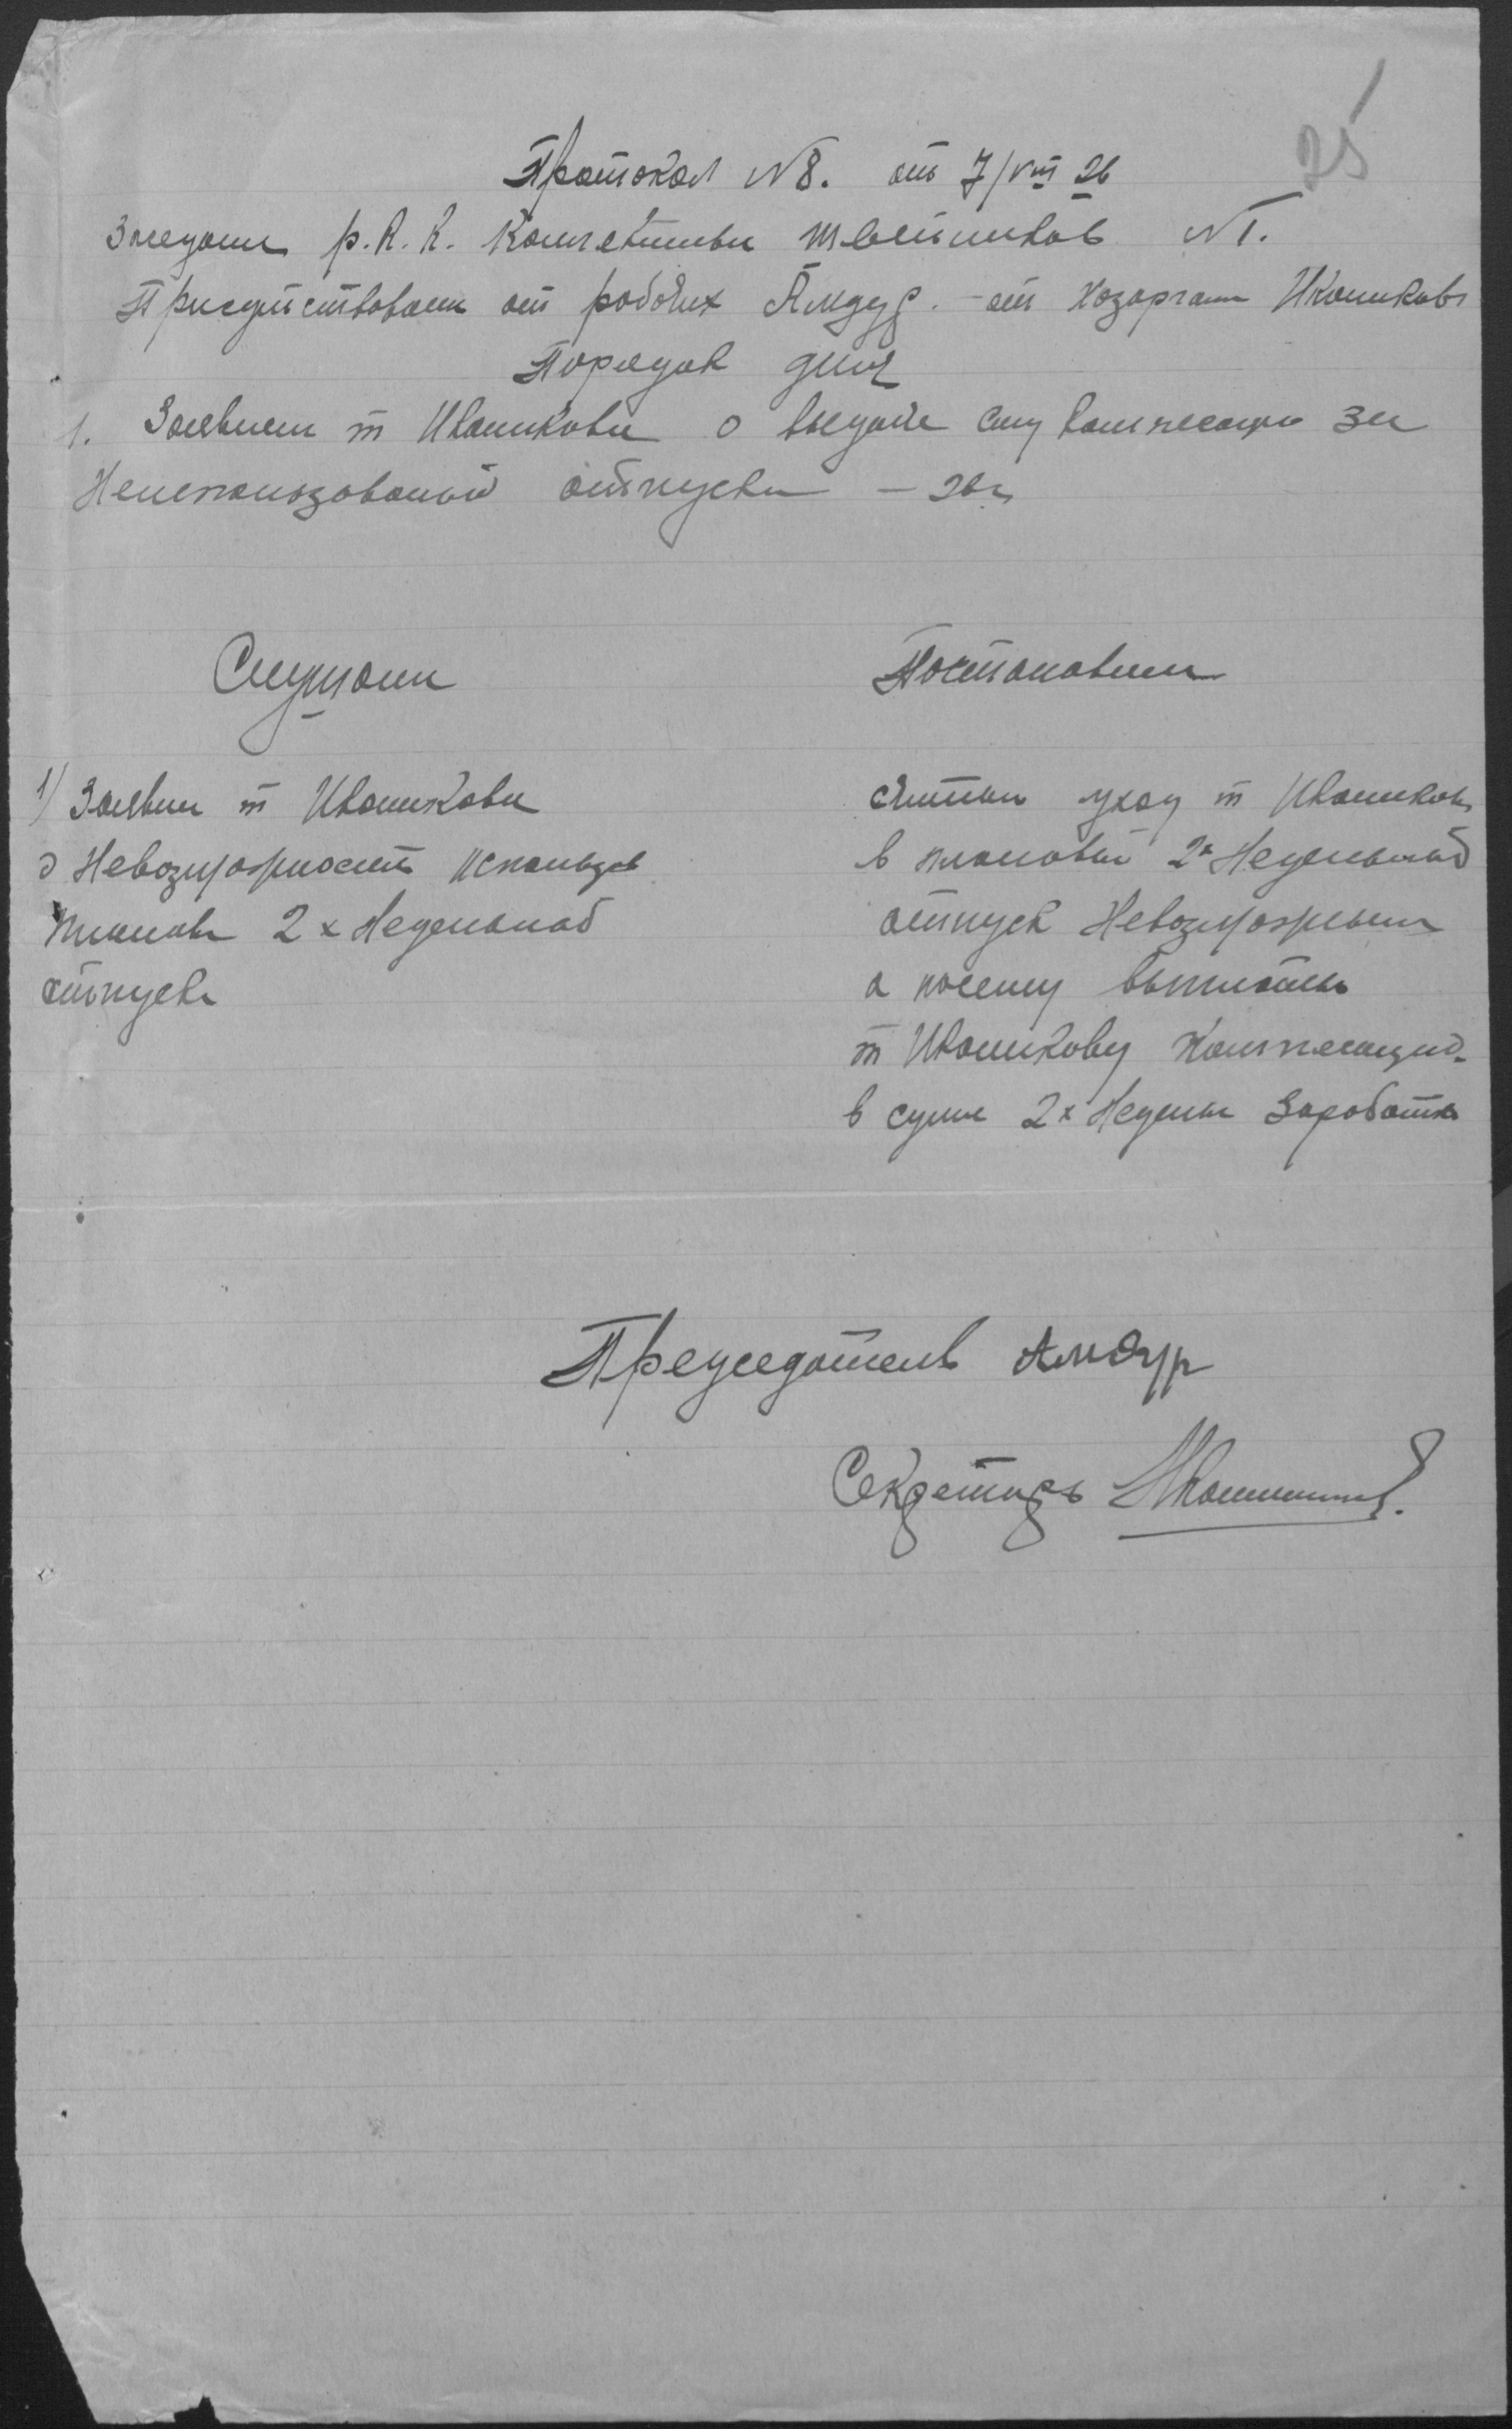 25
Протокол №8. от 7/VIII 26
Заседани р.К.К. Коллектива швейников №1.
Присутствовали от рабочих Амдур. - от хозоргана Ивашков
Порядок дня
1. Заявлен т Ивашкова о выдаче ему компенсаци за
Неиспользованый отпуск
Слушали
Постановили
1/ Заявлен т Ивашкова
о Невозможност использов
планов 2х Неделонаб
отпуска
считать уход т Ивашков
в плановый 2х Недельный
отпуск Невозможным
а посему выплатить
т Ивашкову Компенсацию
в сумме 2х Недель Заработка
Председатель Амдур
Секретарь Ивашков.